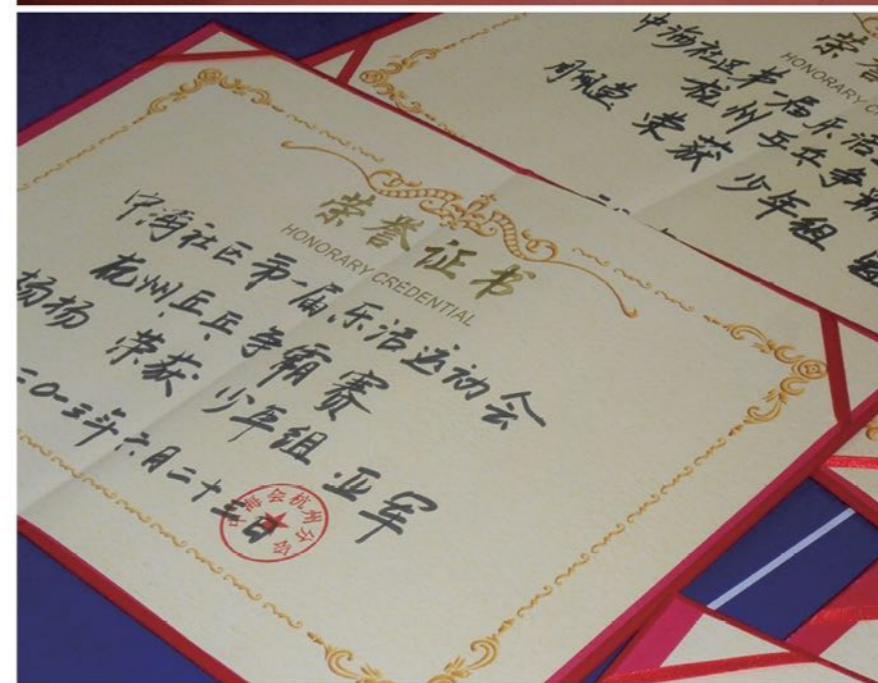 荣誉证书
HONORARY CREDENTIAL
中海社区第一届乐活运动会
杭州乒乓争霸赛
杨杨 荣获 少年组 亚军
二〇一三年六月二十三日
中海会杭州分会
荣誉
HONORARY C
中海社区第一届乐活
杭州乒乓争霸
荣获 少年组